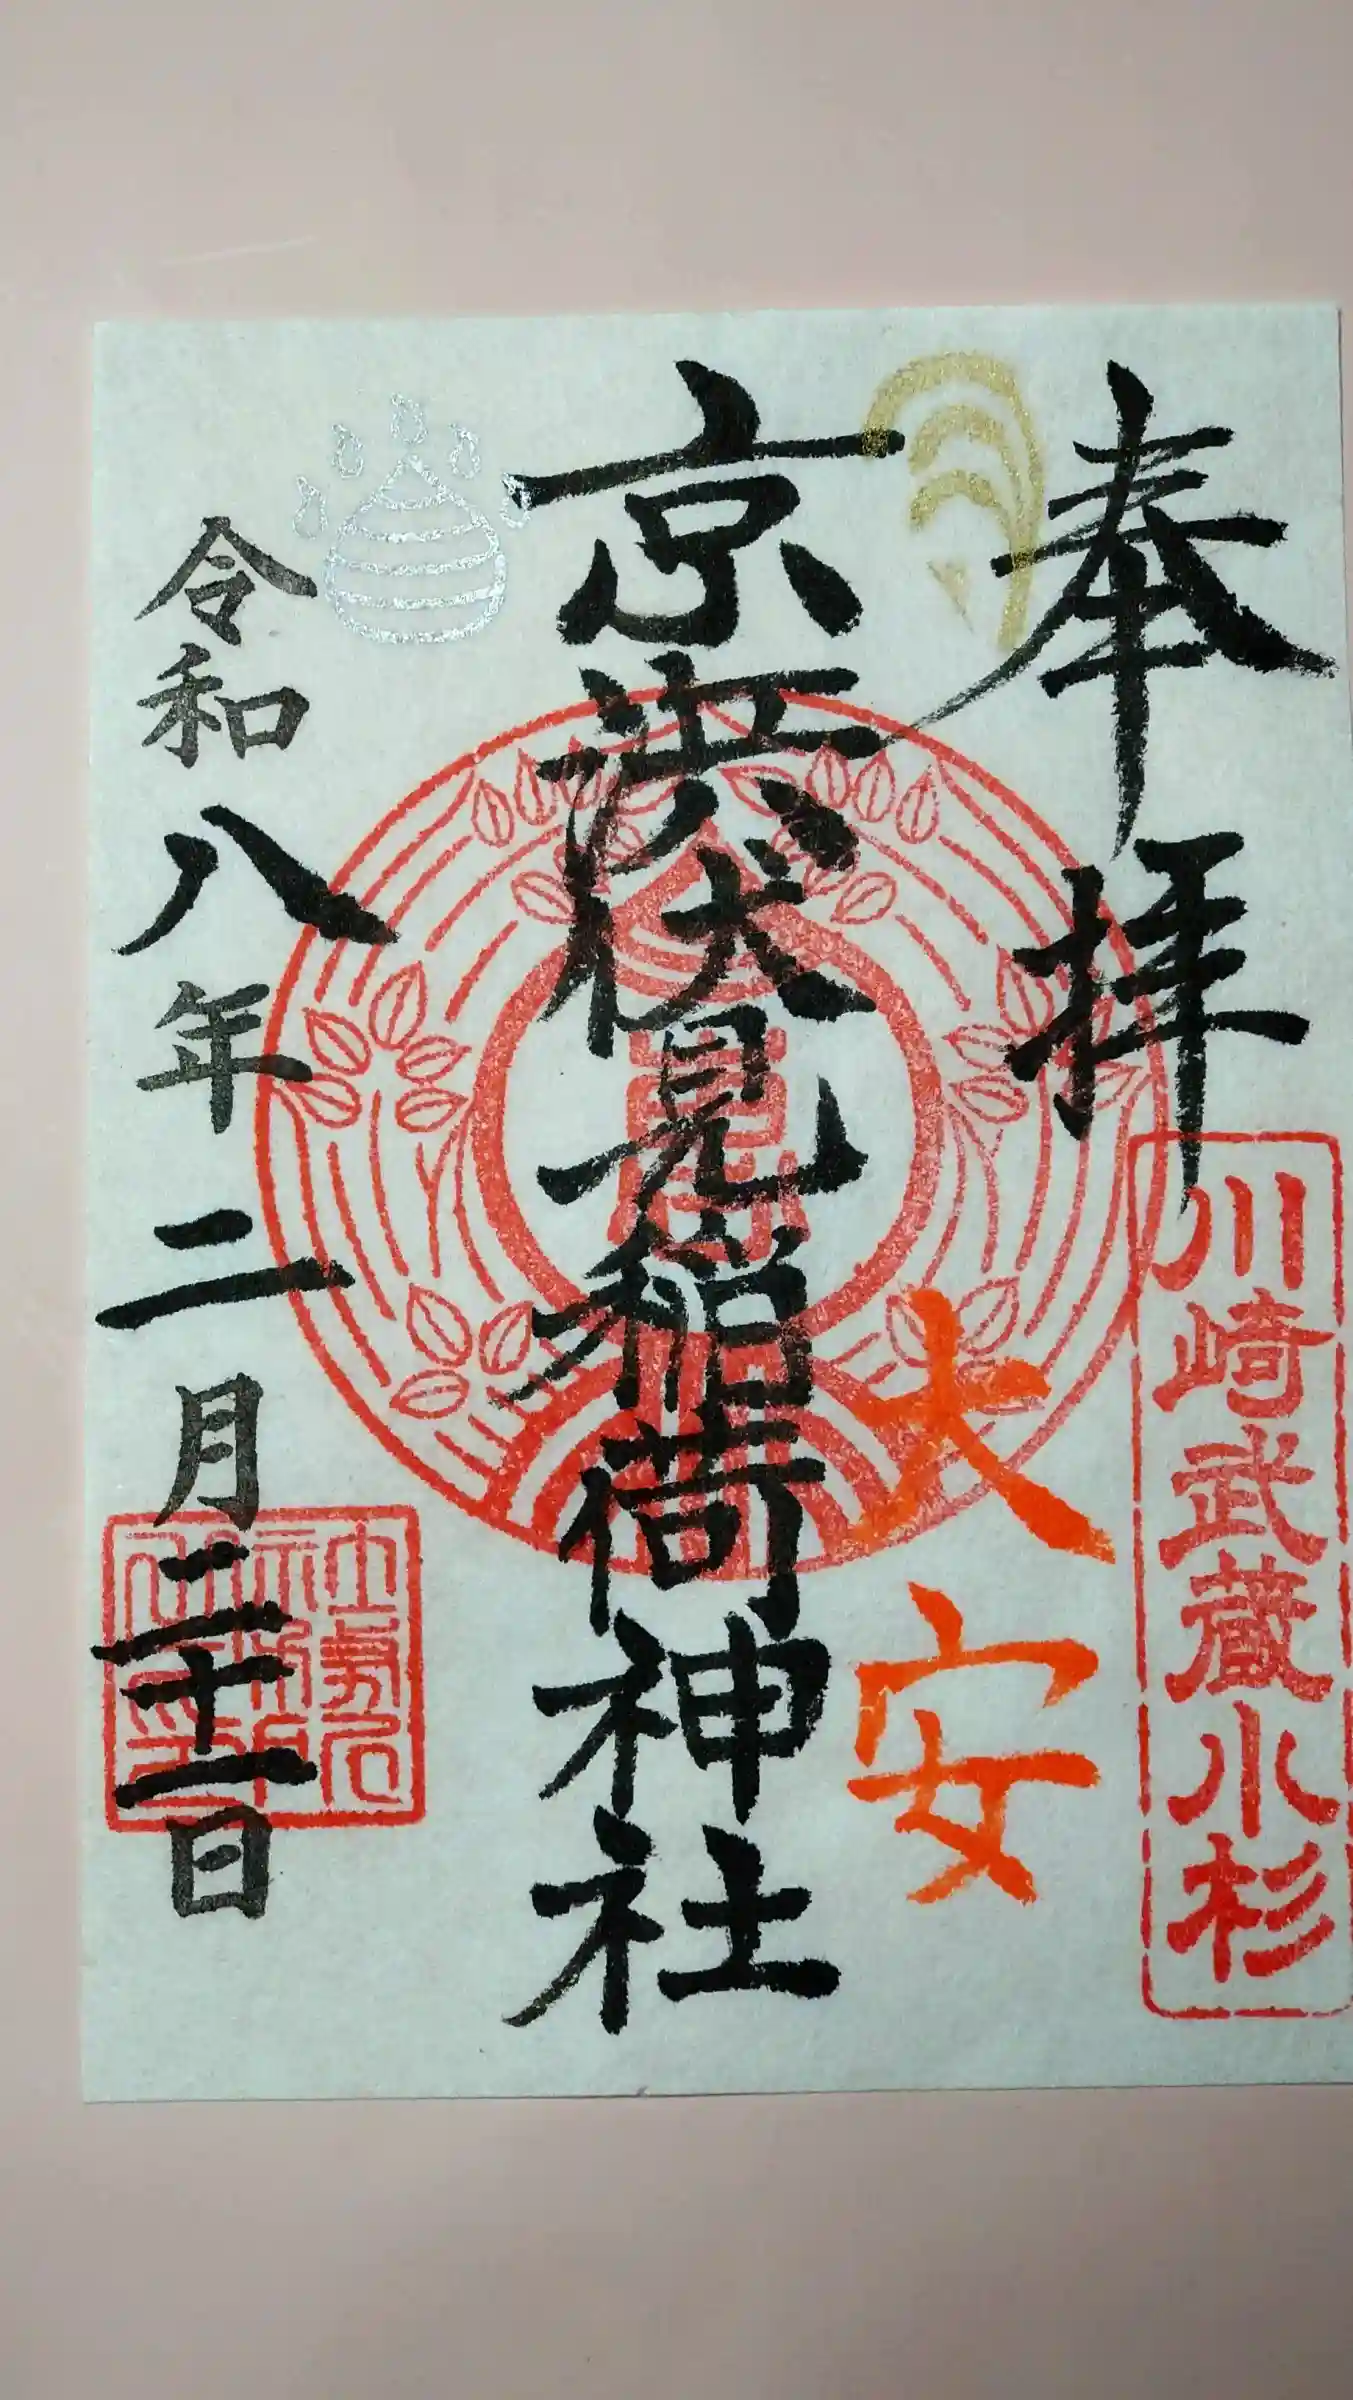 奉拝
川崎武蔵小杉
大安
京濱伏見稲荷神社
令和八年二月二十二日